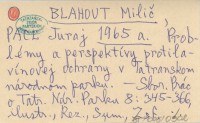 BLAHOUT Milič,
PACL Juraj 1965 a. Prob-
lémy a perspektívy protila-
vínovej ochrany v Tatranskom
národnom parku. – Sbor. Prác
o Tatr. Nár. Parku 8: 345-366,
ilustr., Rez., Sum.